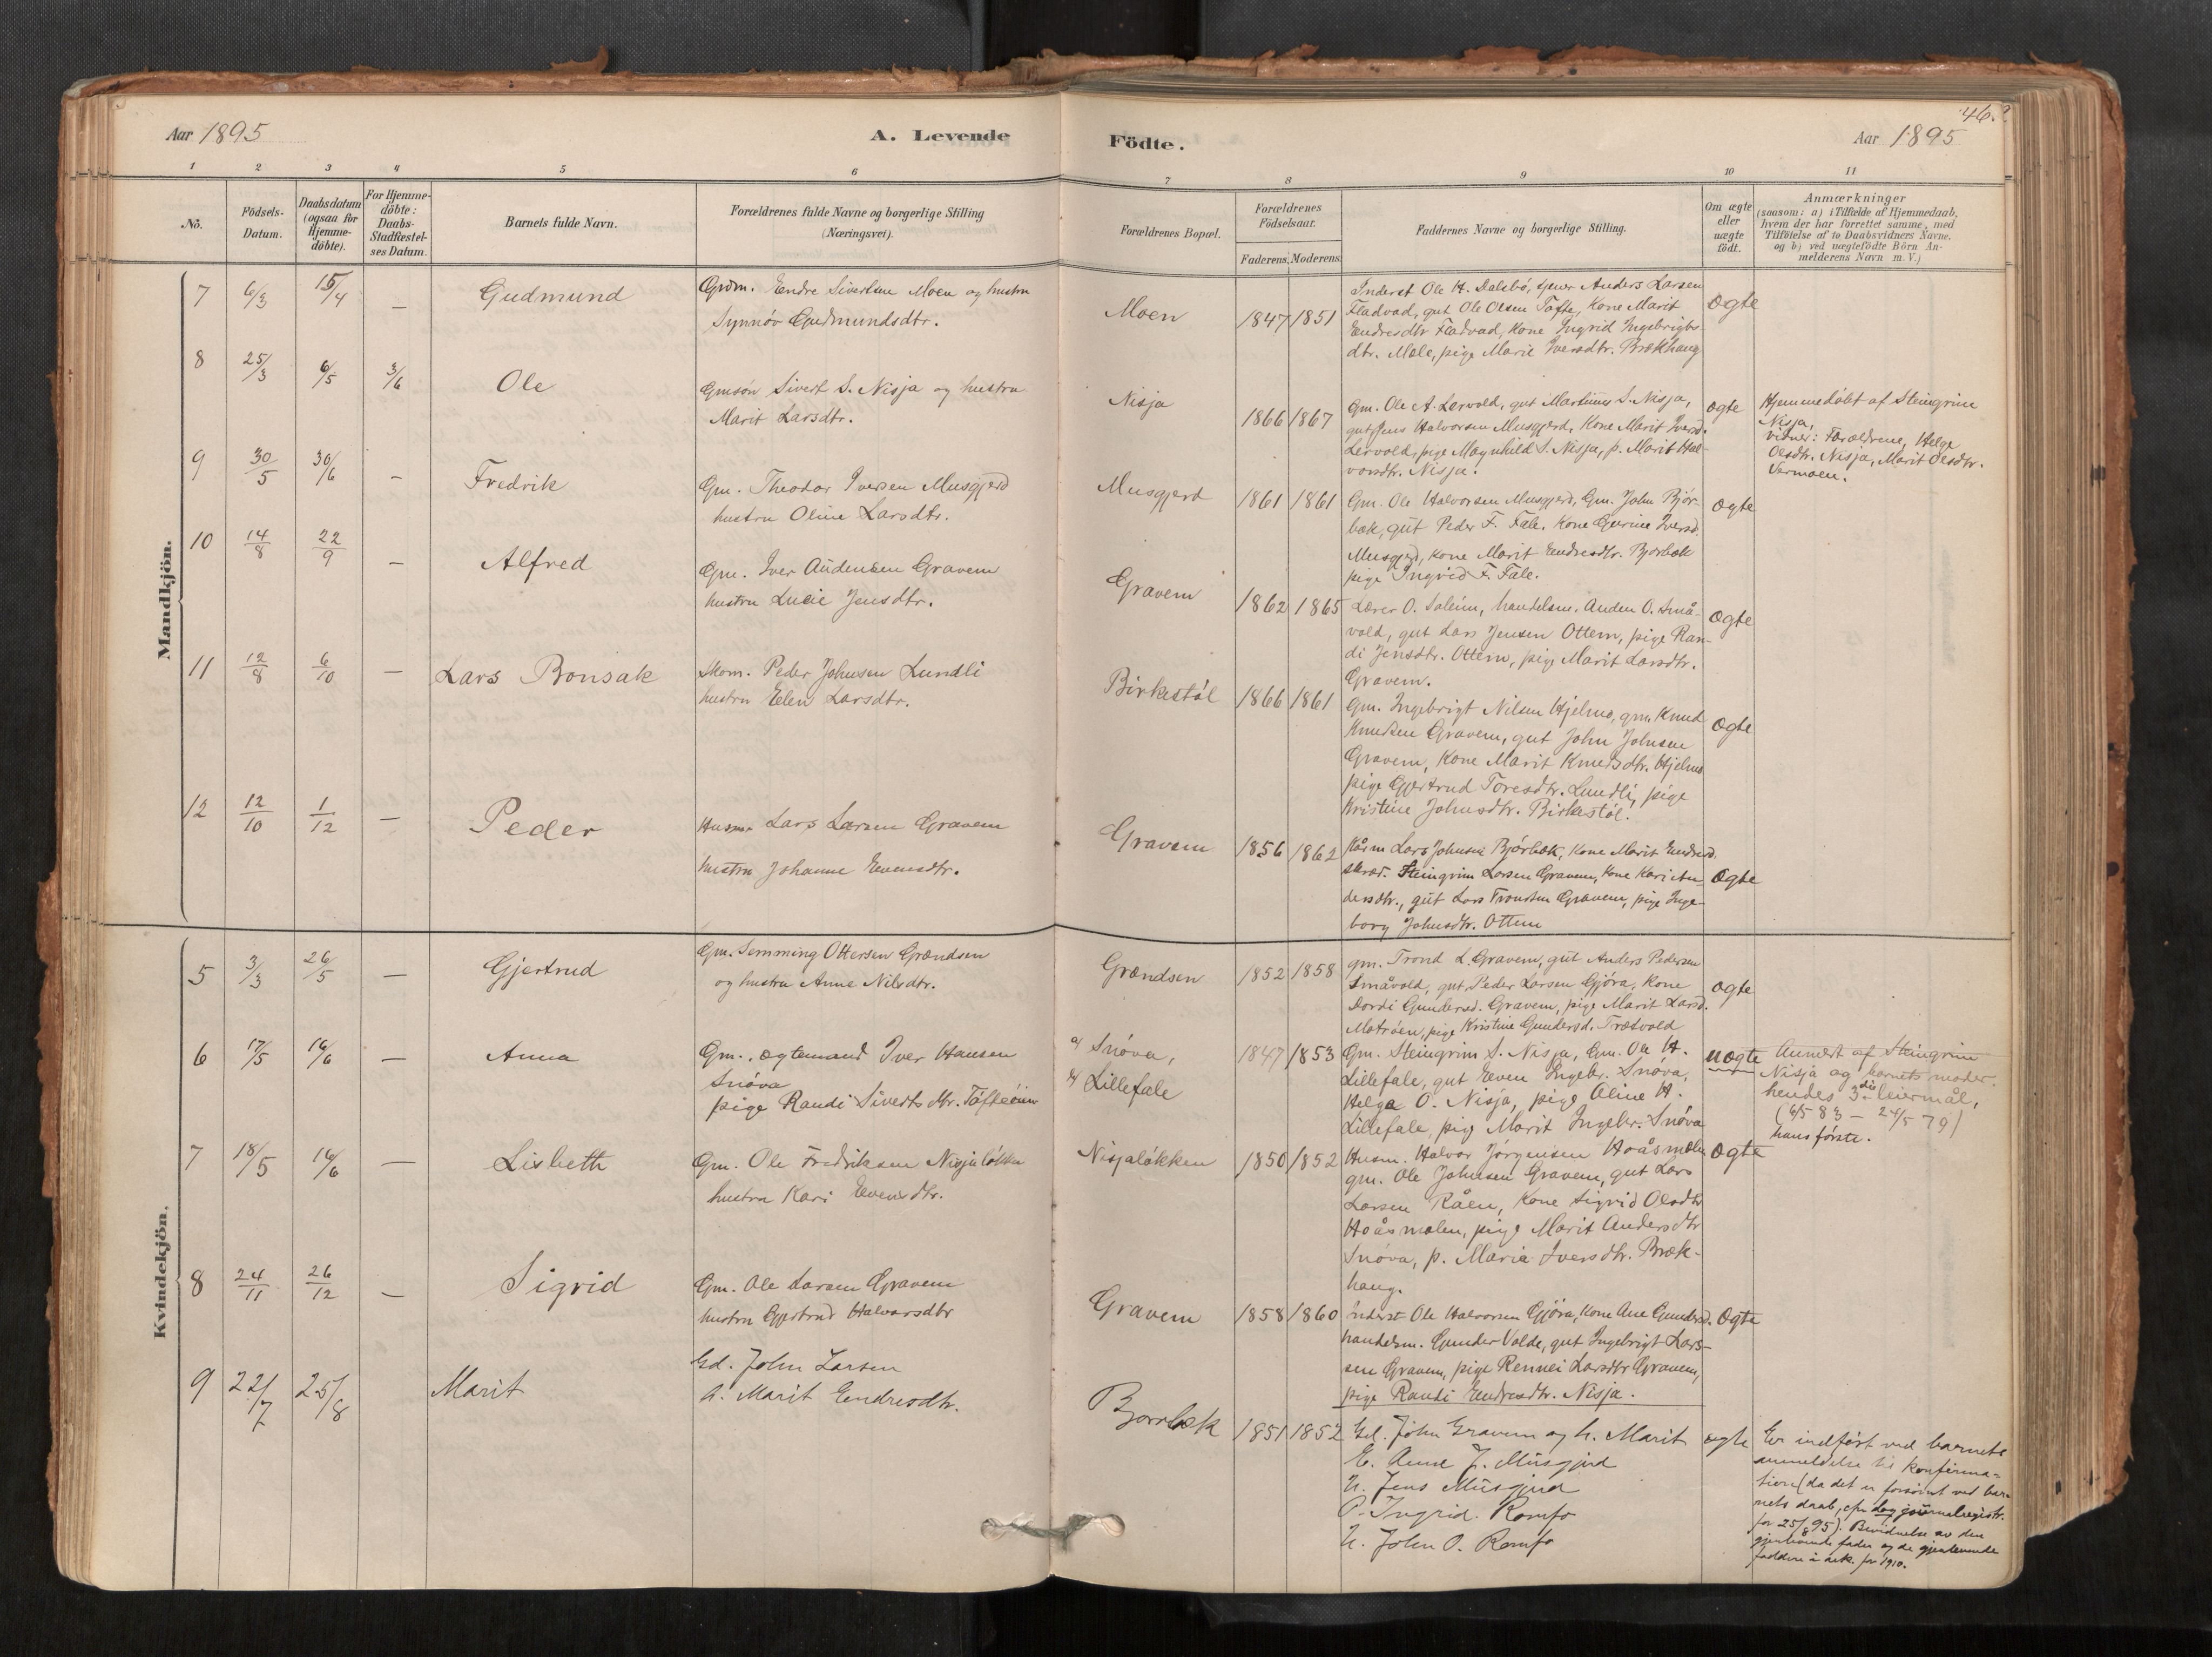 46.
Aar 1895
A. Levende
Födte.
Aar 1895
1 2 3 4 5 6 7 8 9 10 11
No.
Födsels-
Datum.
Daabsdatum
(ogsaa for
Hjemme-
döbte).
For Hjemme-
döbte:
Daabs-
Stadfæstel-
ses Datum.
Barnets fulde Navn.
Forældrenes fulde Navne og borgerlige Stilling
(Næringsvei).
Forældrenes Bopæl.
Forældrenes
Födselsaar.
Faderens. Moderens.
Faddernes Navne og borgerlige Stilling.
Om ægte
eller
uægte
födt.
Anmærkninger
(saasom: a) i Tilfælde af Hjemmedaab,
hvem der har forrettet samme, med
Tilföielse af to Daabsvidners Navne,
og b) ved uægtefödte Börn An-
melderens Navn m. V.)
Mandkjön.
7 6/3 15/4 — Gudmund
Grdm. Endre Sivertsen Moen og hustru
Synnöv Gudmundsdtr.
Moen 1847 1851
Inderst Ole H. Dalsbö, tjener Anders Larsen
Fladvad, gut Ole Olsen Tofte, Kone Marit
Endresdtr Fladvad, Kone Ingrid Ingebrigts-
dtr. Mæle, pige Marie Iversdtr. Brækhaug
ægte
8 25/3 6/5 3/6 Ole
Gmsön Sivert S. Nisja og hustru
Marit Larsdtr.
Nisja 1866 1867
Gm. Ole A. Lervold, gut Martinus S. Nisja,
gut Jens Halvorsen Musgjerd, Kone Marit Iversd.
Lervold, pige Magnhild S. Nisja, p. Marit Hal-
vorsdtr. Nisja.
ægte
Hjemmedöbt af Steingrim
Nisja,
vidner: Forældrene, Helge
Olsdtr. Nisja, Marit Olsdtr.
Vermoen.
9 30/5 30/6 — Fredrik
Gm. Theodor Iversen Musgjerd
hustru Oline Larsdtr.
Musgjerd 1861 1861
Gm. Ole Halvorsen Musgjerd, Gm. John Björ-
bæk, gut Peder F. Fale, Kone Gurine Iversd.
Musgjerd, Kone Marit Endresdtr. Bjorbæk
pige Ingrid F. Fale.
ægte
10 14/8 22/9 — Alfred
Gm. Iver Audensen Gravem
hustru Lucie Jensdtr.
Gravem 1862 1865
Lærer O. Saleim, handelsm. Anden O. Små-
vold, gut Lars Jensen Ottem, pige Ran-
di Jensdtr. Ottem, pige Marit Larsdtr.
Gravem.
ægte
11 12/8 6/10 — Lars Bonsak
Skom. Peder Johnsen Lundli
hustru Elen Larsdtr.
Birkestöl 1866 1861
Gm. Ingebrigt Nilsen Hjelmo, gm. Knud
Knudsen Gravem, gut John Johnsen
Gravem, Kone Marit Knudsdtr. Hjelmo
pige Gjertrud Toresdtr. Lundli, pige
Kristine Johnsdtr. Birkestöl.
ægte
12 12/10 1/12 — Peder
Husm. Lars Larsen Gravem
hustru Johanne Evensdtr.
Gravem 1856 1862
Kårm Lars Johnsen Björbæk, Kone Marit Endresd.
skræd. Steingrim Larsen Gravem, Kone Kari An
dersdtr., gut Lars Trondsen Gravem, pige Inge-
borg Johnsdtr. Ottem
ægte
Kvindekjön.
5 3/3 26/5 — Gjertrud
Gm. Semming Ottersen Grændsen
og hustru Anne Nilsdtr.
Grændsen 1852 1858
gm. Trond L. Gravem, gut Anders Pedersen
Småvold, gut Peder Larsen Gjöra, Kone
Dordi Gundersd. Gravem, pige Marit Larsd.
Motröen, pige Kristine Gundersd. Trætvold
ægte
6 17/5 16/6 — Anna
Gm., ægtemand Iver Hansen
Snöva
pige Randi Sivertsdtr. Tofteöien
a/ Snöva,
b/ Lillefale
1847 1853
Gm. Steingrim S. Nisja, Gm. Ole H.
Lillefale, gut Even Ingebr. Snöva,
Helga O. Nisja, pige Oline H.
Lillefale, pige Marit Ingebr. Snöva
uægte
Anmeldt af Steingrim
Nisja og barnets moder.
hendes 3die leiermål,
(6/5 83 — 24/5 79)
hans förste.
7 18/5 16/6 — Lisbeth
Gm. Ole Fredriksen Nisjalökken
hustru Kari Evensdtr.
Nisjalökken 1850 1852
Husm. Halvor Jörgensen Hoåsmælen
gm. Ole Johnsen Gravem, gut Lars
Larsen Råen, Kone Sigrid Olsdtr
Hoåsmælen, pige Marit Andersdtr
Snöva, p. Maria Iversdtr. Bræk-
haug.
ægte
8 24/11 26/12 — Sigrid
Gm. Ole Larsen Gravem
hustru Gjertrud Halvorsdtr
Gravem 1858 1860
Inderst Ole Halvorsen Gjöra, Kone Ane Gundersd.
handelsm. Gunder Volde, gut Ingebrigt Lars-
sen Gravem, pige Rennei Larsdtr Gravem,
pige Randi Endresdtr. Nisja.
ægte
9 22/7 25/8 Marit
Gd. John Larsen
H. Marit Endresdtr.
Bjørbæk 1851 1852
Gd. John Gravem og h. Marit
E. Anne J. Musgjerd
U. Jens Musgjerd
P. Ingrid Romfo
U. John O. Romfo
ægte
Er indført ved barnets
anmeldelse til konfirma-
tion (da det er forsømt ved bar-
nets daab, cfr dagjournalregistr.
for 25/8 95). Bevidnelse av den
gjenlevende fader og de gjenlevende
faddere i ark. for 1910.